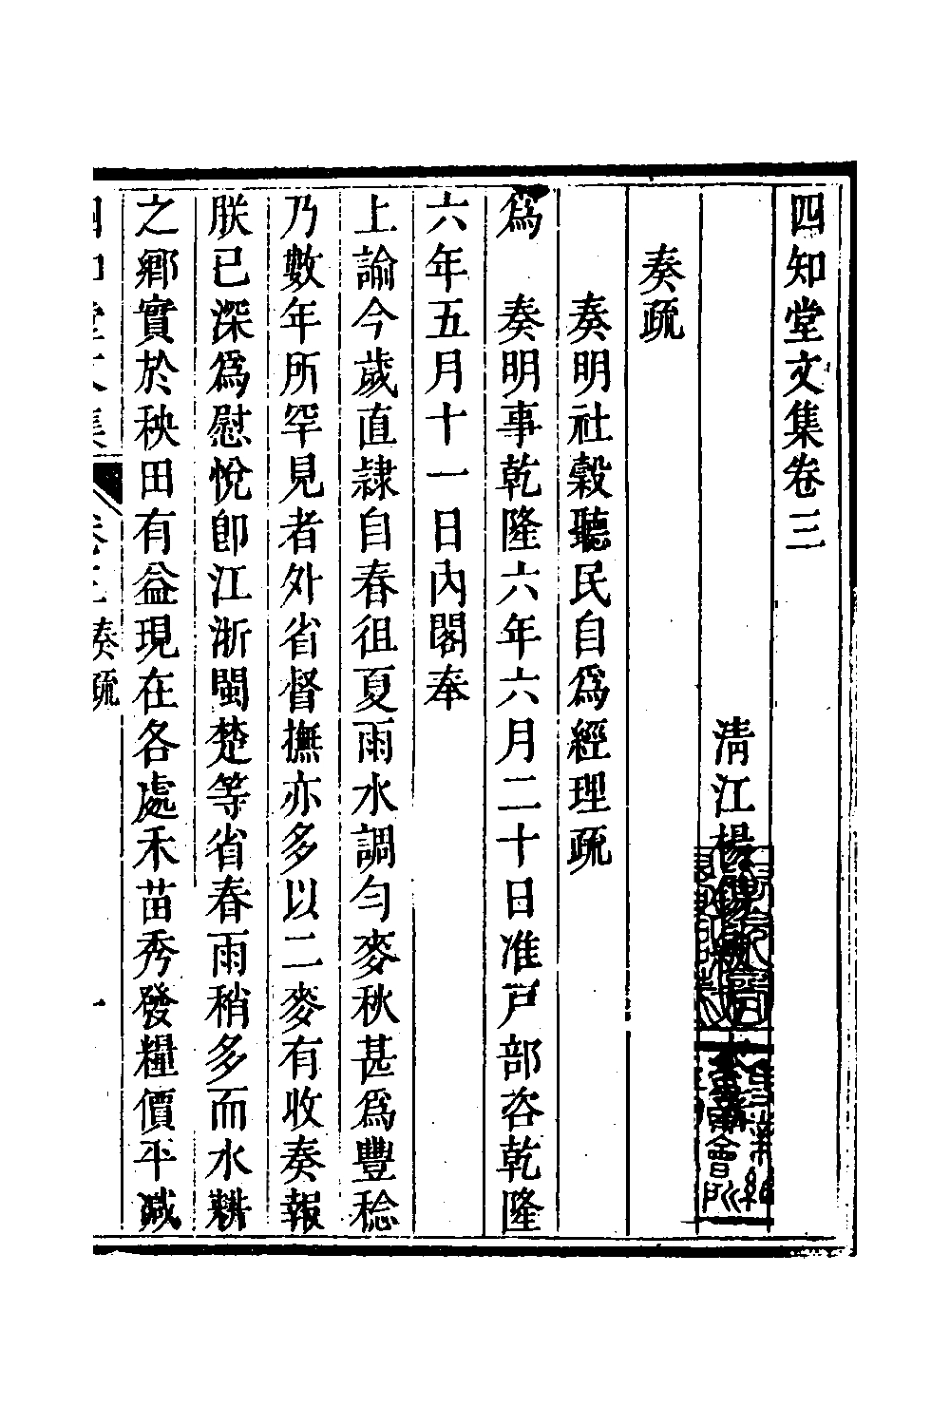 四知堂文集卷三
清江楊錫紱
奏疏
奏明社穀聽民自爲經理疏
爲奏明事乾隆六年六月二十日准戸部咨乾隆
六年五月十一日內閣奉
上諭今歲直隷自春徂夏雨水調勻麥秋甚爲豐稔
乃數年所罕見者外省督撫亦多以二麥有收奏報
朕已深爲慰悅卽江浙閩楚等省春雨稍多而水耕
之鄉實於秧田有益現在各處禾苗秀發糧價平減
四知堂文集 卷三奏疏 一